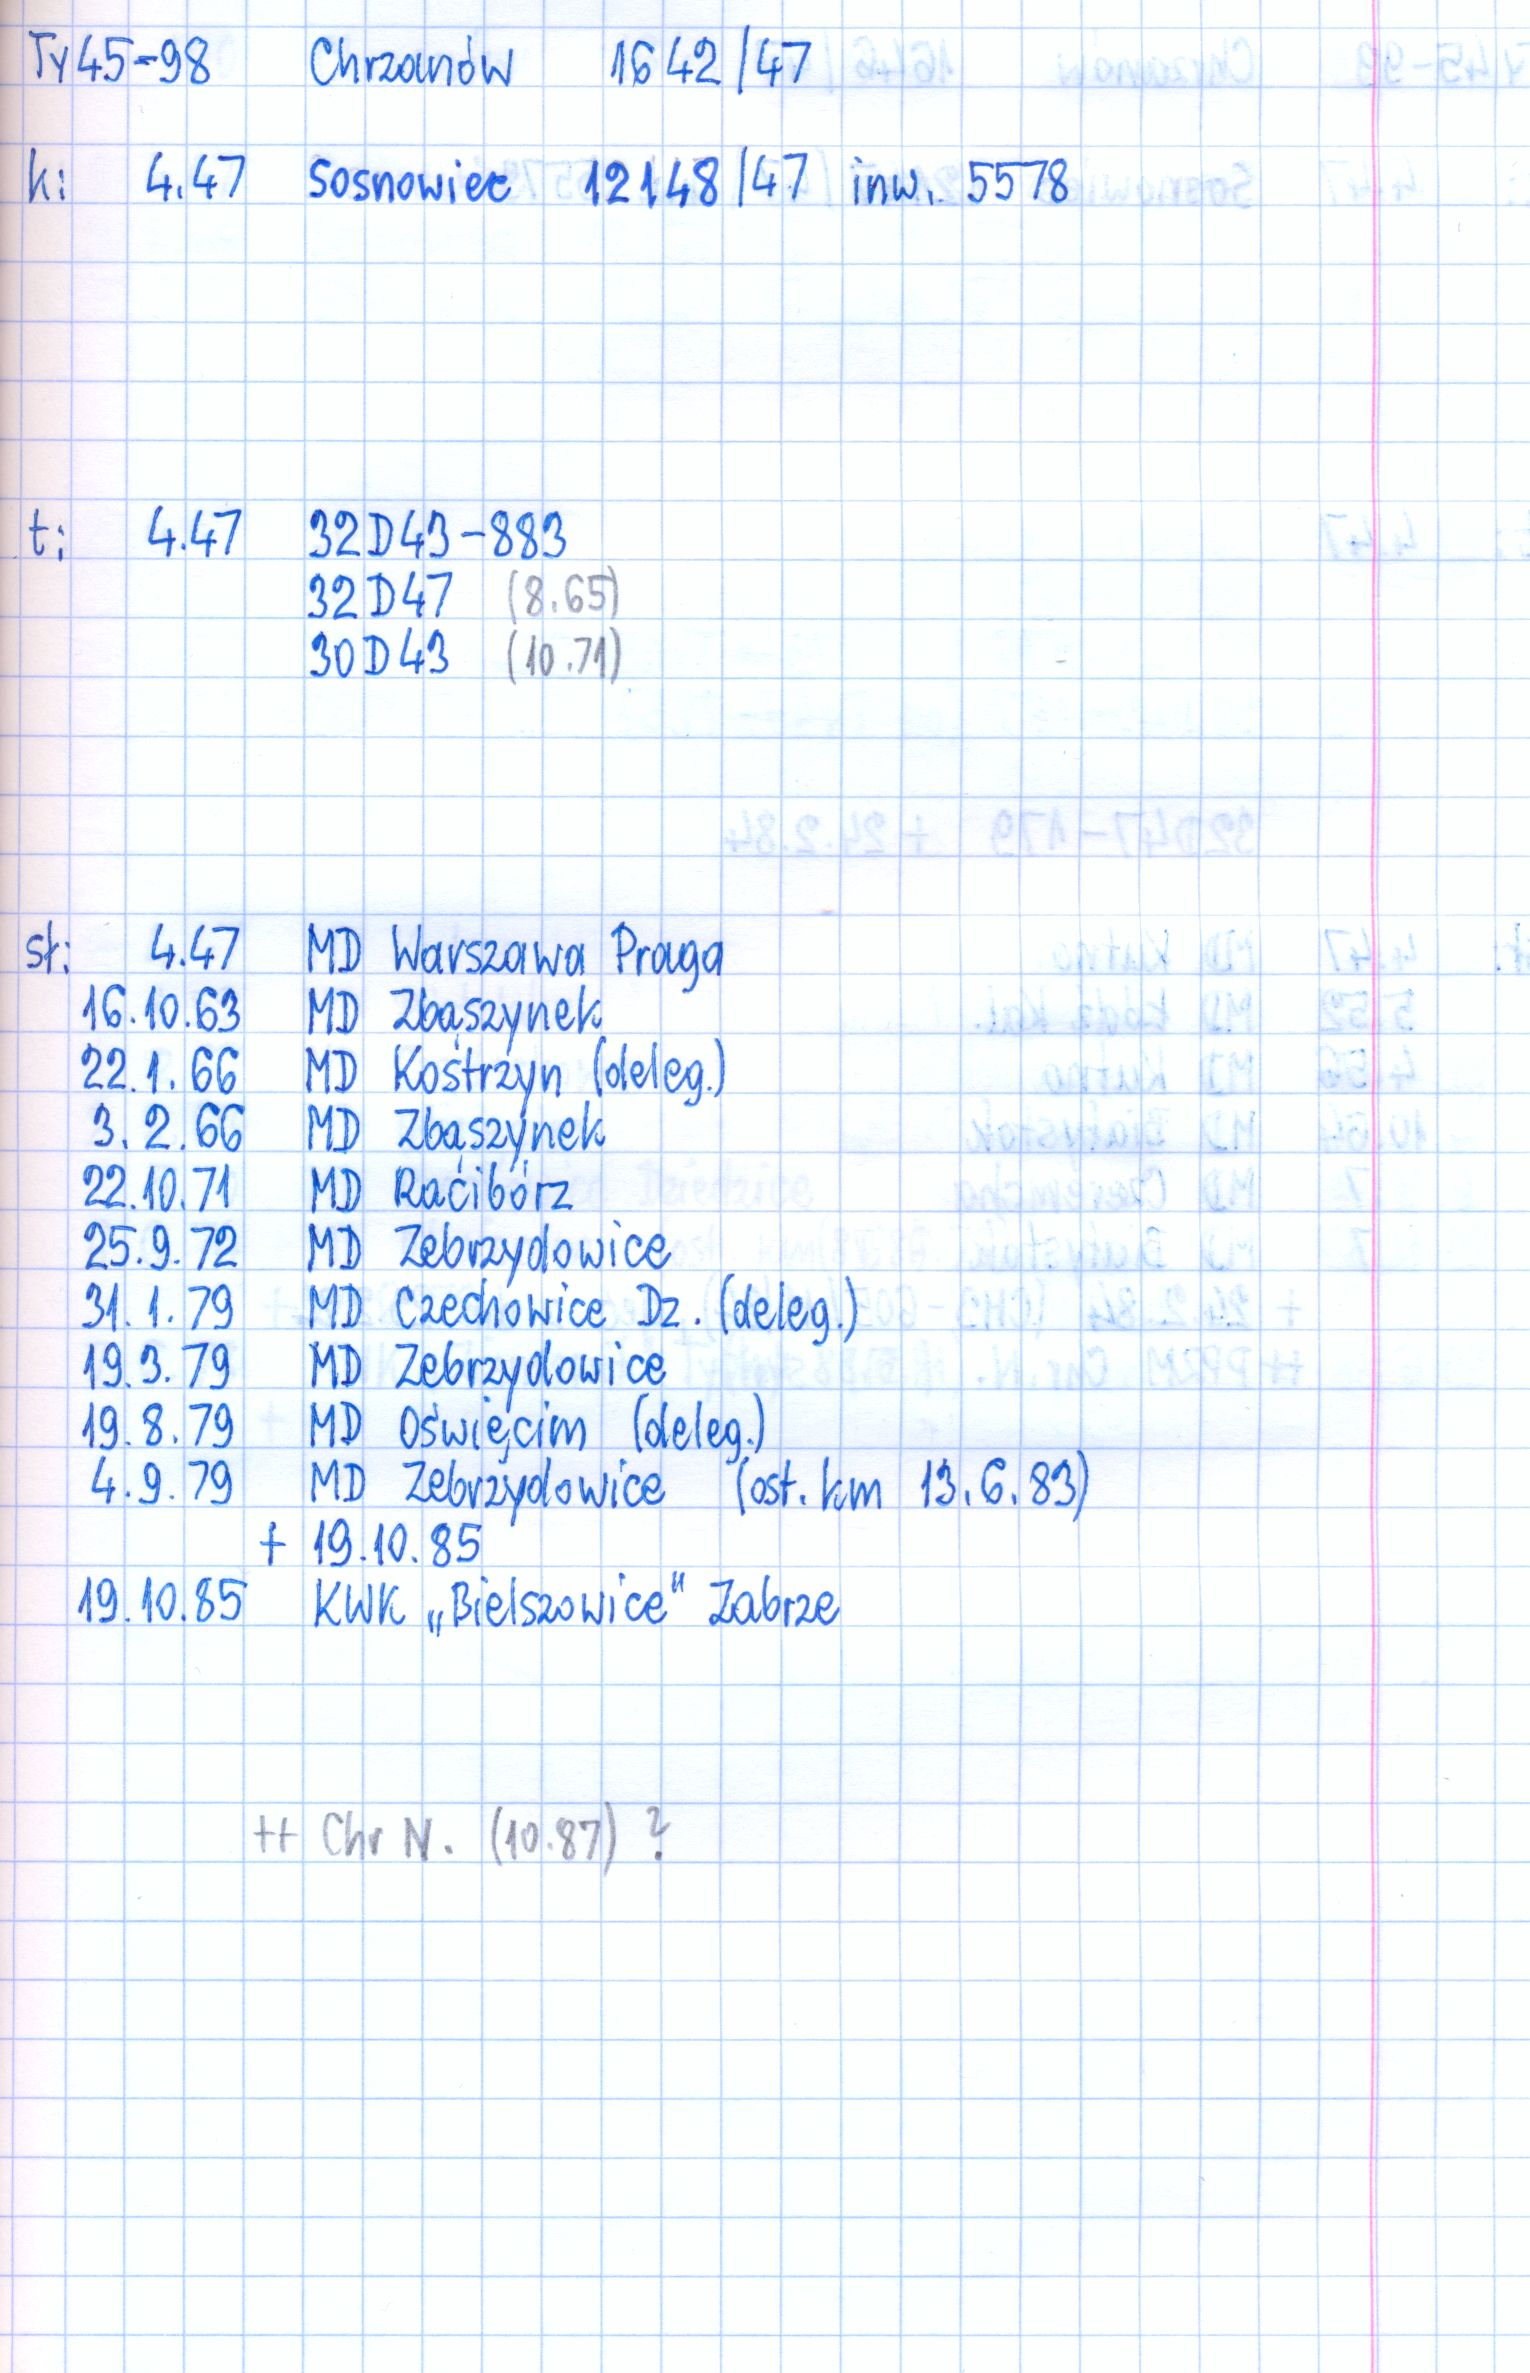 Ty45-98 Chrzanów 1642/47
k: 4.47 Sosnowiec 12148/47 inw. 5578
t: 4.47 32D43-883
32D47 (8.65)
30D43 (10.71)
sł: 4.47 MD Warszawa Praga
16.10.63 MD Zbąszynek
22.1.66 MD Kostrzyn (deleg.)
3.2.66 MD Zbąszynek
22.10.71 MD Racibórz
25.9.72 MD Zebrzydowice
31.1.79 MD Czechowice Dz. (deleg.)
19.3.79 MD Zebrzydowice
19.8.79 MD Oświęcim (deleg.)
4.9.79 MD Zebrzydowice (ost. km 13.6.83)
+ 19.10.85
19.10.85 KWK „Bielszowice" Zabrze
++ Chr N. (10.87) ?